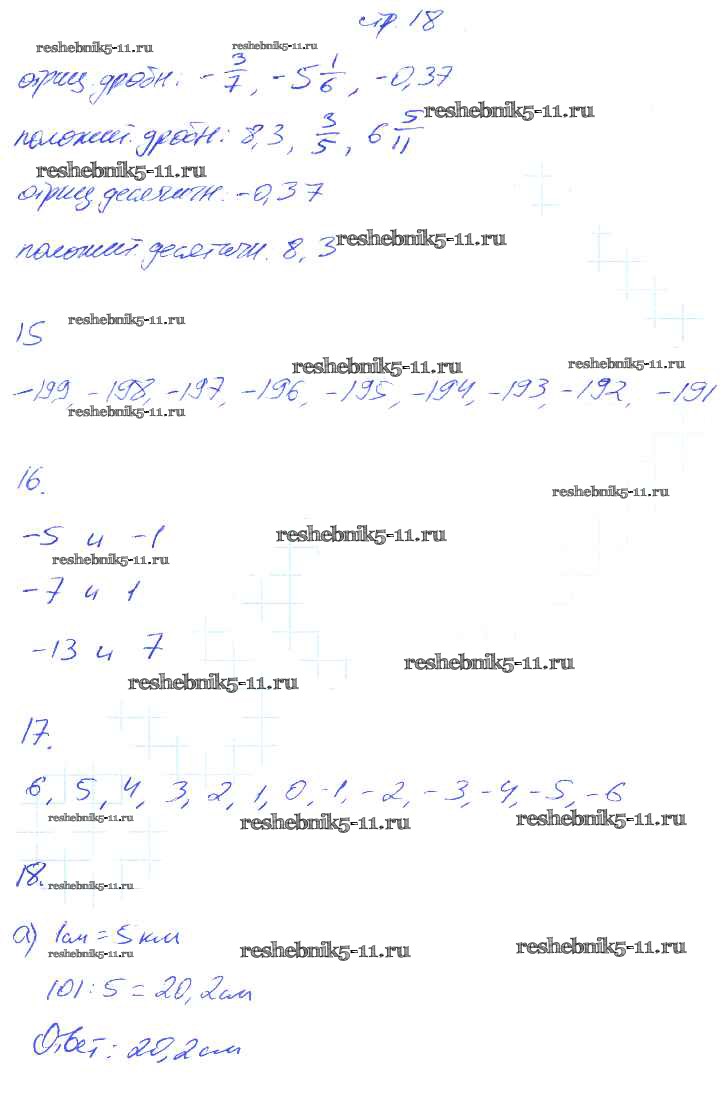 стр. 18
reshebnik5-11.ru reshebnik5-11.ru
отриц. дробн: -3/7, -5 1/6, -0,37
reshebnik5-11.ru
положит. дробн: 8,3, 3/5, 6 5/11
reshebnik5-11.ru
отриц десятичн: -0,37
положит. десятичн. 8,3
reshebnik5-11.ru
reshebnik5-11.ru
15
reshebnik5-11.ru reshebnik5-11.ru
-199, -198, -197, -196, -195, -194, -193, -192, -191
reshebnik5-11.ru
16.
reshebnik5-11.ru
-5 и -1
reshebnik5-11.ru
reshebnik5-11.ru
-7 и 1
-13 и 7
reshebnik5-11.ru
reshebnik5-11.ru
17.
6, 5, 4, 3, 2, 1, 0, -1, -2, -3, -4, -5, -6
reshebnik5-11.ru reshebnik5-11.ru reshebnik5-11.ru
18.
reshebnik5-11.ru
а) 1см = 5км
reshebnik5-11.ru reshebnik5-11.ru reshebnik5-11.ru
101 : 5 = 20,2см
Ответ: 20,2см